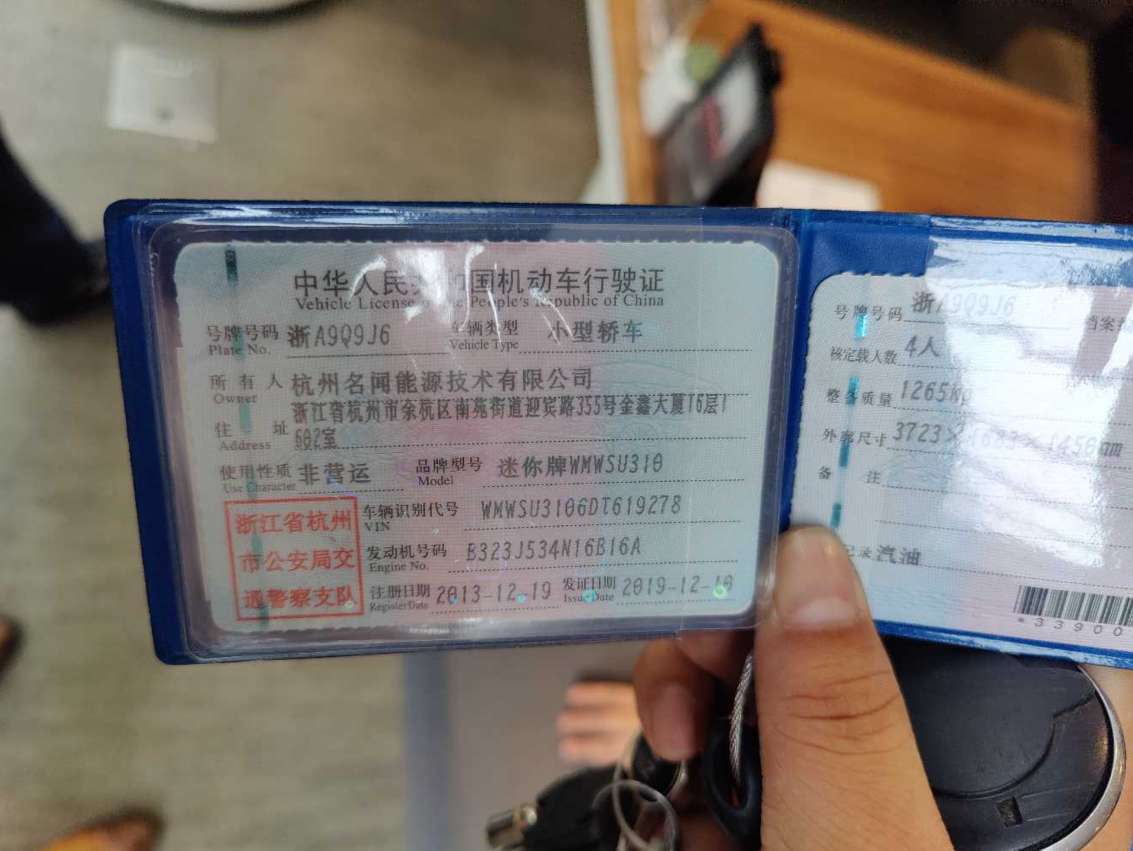 中华人民 和国机动车行驶证
Vehicle License the People's Republic of China
号牌号码 浙A9Q9J6 车辆类型 小型轿车
Plate No. Vehicle Type
所有人 杭州名闻能源技术有限公司
Owner
浙江省杭州市余杭区南苑街道迎宾路355号金鑫大厦16层1
住址 602室
Address
使用性质 非营运 品牌型号 迷你牌WMWSU310
Use Character Model
浙江省杭州
市公安局交
通警察支队
车辆识别代号 WMWSU3106DT619278
VIN
发动机号码 B323J534N16B16A
Engine No.
注册日期 2013-12-19 发证日期 2019-12-10
Register Date Issue Date
号牌号码 浙A9Q9J6 档案
核定载人数 4人
整备质量 1265kg
外廓尺寸 3723× 1456mm
备注
汽油
*33900